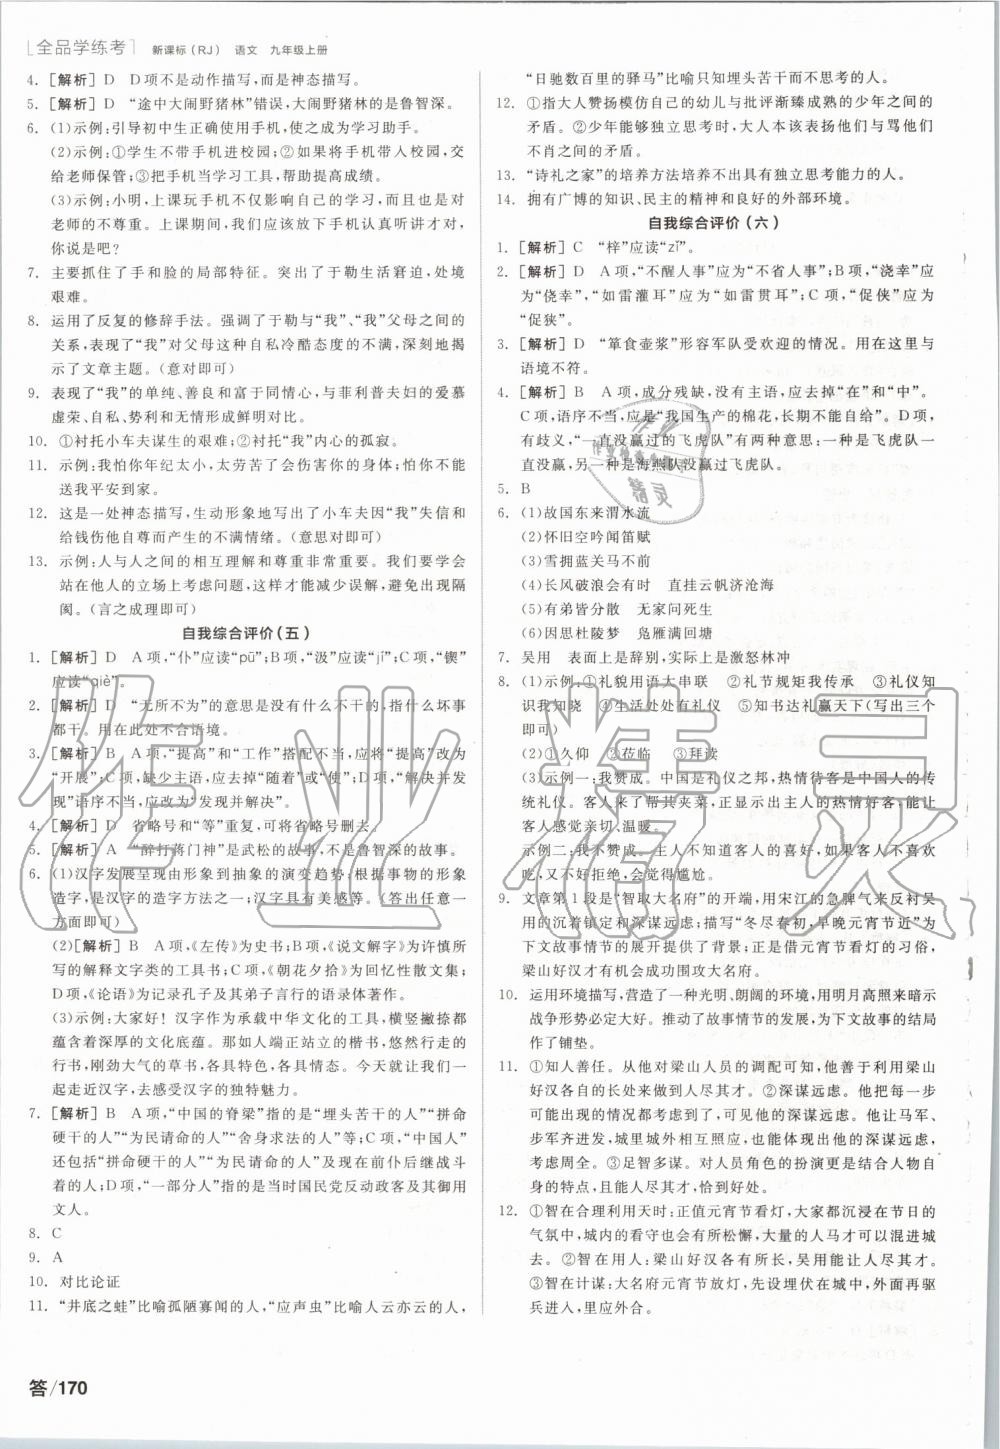 全品学练考 新课标(RJ) 语文 九年级上册
4. [解析] D D项不是动作描写,而是神态描写。
5. [解析] D “途中大闹野猪林”错误,大闹野猪林的是鲁智深。
6. (1)示例:引导初中生正确使用手机,使之成为学习助手。
(2)示例:①学生不带手机进校园;②如果将手机带入校园,交
给老师保管;③把手机当学习工具,帮助提高学习成绩。
(3)示例:小明,上课玩手机不仅影响自己的学习,而且也是对
老师的不尊重。上课期间,我们应该放下手机认真听讲才对,
你说是吧?
7. 主要抓住了手和脸的局部特征。突出了于勒生活窘迫,处境
艰难。
8. 运用了反复的修辞手法。强调了于勒与“我”、“我”父母之间的
关系,表现了“我”对父母这种自私冷酷态度的不满,深刻地揭
示了文章主题。(意对即可)
9. 表现了“我”的单纯、善良和富于同情心,与菲利普夫妇的爱慕
虚荣、自私、势利和无情形成鲜明对比。
10. ①衬托小车夫谋生的艰难;②衬托“我”内心的孤寂。
11. 示例:我怕你年纪太小,太劳苦了会伤害你的身体;怕你不能
送我平安到家。
12. 这是一处神态描写,生动形象地写出了小车夫因“我”失信和
给钱伤他自尊而产生的不满情绪。(意思对即可)
13. 示例:人与人之间的相互理解和尊重非常重要。我们要学会
站在他人的立场上考虑问题,这样才能减少误解,避免出现隔
阂。(言之成理即可)
自我综合评价(五)
1. [解析] D A项,“仆”应读“pū”;B项,“汲”应读“jí”;C项,“锲”
应读“qiè”。
2. [解析] D “无所不为”的意思是没有什么不干的,指什么坏事
都干。用在此处不合语境。
3. [解析] B A项,“提高”和“工作”搭配不当,应将“提高”改为
“开展”;C项,缺少主语,应去掉“随着”或“使”;D项,“解决并发
现”语序不当,应改为“发现并解决”。
4. [解析] D 省略号和“等”重复,可将省略号删去。
5. [解析] A “醉打蒋门神”是武松的故事,不是鲁智深的故事。
6. (1)汉字发展呈现由象形到抽象的演变趋势;根据事物的形象
造字,是汉字的造字方法之一;汉字具有美感等。(答出任意一
方面即可)
(2)[解析] B A项,《左传》为史书;B项,《说文解字》为许慎所
写的解释文字类的工具书;C项,《朝花夕拾》为回忆性散文集;
D项,《论语》为记录孔子及其弟子言行的语录体著作。
(3)示例:大家好!汉字作为承载中华文化的工具,横竖撇捺都
蕴含着深厚的文化底蕴。那如人端正站立的楷书,悠然行走的
行书,刚劲大气的草书,各具特色,各具情态。今天就让我们一
起走近汉字,去感受汉字的独特魅力。
7. [解析] B A项,“中国的脊梁”指的是“埋头苦干的人”“拼命
硬干的人”“为民请命的人”“舍身求法的人”等;C项,“中国人”
还包括“拼命硬干的人”“为民请命的人”以及现在前仆后继战斗
着的人;D项,“一部分人”指的是当时国民党反动政客及其御用
文人。
8. C
9. A
10. 对比论证
11. “井底之蛙”比喻孤陋寡闻的人,“应声虫”比喻人云亦云的人,
“日驰数百里的驿马”比喻只知埋头苦干而不思考的人。
12. ①指大人赞扬模仿自己的幼儿与批评渐臻成熟的少年之间的
矛盾。②少年能够独立思考时,大人本该表扬他们与骂他们
不肖之间的矛盾。
13. “诗礼之家”的培养方法培养不出具有独立思考能力的人。
14. 拥有广博的知识、民主的精神和良好的外部环境。
自我综合评价(六)
1. [解析] C “梓”应读“zǐ”。
2. [解析] D A项,“不醒人事”应为“不省人事”;B项,“浇幸”应
为“侥幸”,“如雷灌耳”应为“如雷贯耳”;C项,“促侠”应为
“促狭”。
3. [解析] D “箪食壶浆”形容军队受欢迎的情况。用在这里与
语境不符。
4. [解析] B A项,成分残缺,没有主语,应去掉“在”和“中”。
C项,语序不当,应是“我国生产的棉花,长期不能自给”。D项,
有歧义,“一直没赢过的飞虎队”有两种意思:一种是飞虎队一
直没赢,另一种是海燕队没赢过飞虎队。
5. B
6. (1)故国东来渭水流
(2)怀旧空吟闻笛赋
(3)雪拥蓝关马不前
(4)长风破浪会有时 直挂云帆济沧海
(5)有弟皆分散 无家问死生
(6)因思杜陵梦 凫雁满回塘
7. 吴用 表面上是辞别,实际上是激怒林冲
8. (1)示例:①礼貌用语大串联 ②礼节规矩我传承 ③礼仪知
识我知晓 ④生活处处有礼仪 ⑤知书达礼赢天下(写出三个
即可)
(2)①久仰 ②莅临 ③拜读
(3)示例一:我赞成。中国是礼仪之邦,热情待客是中国人的传
统礼仪。客人来了帮其夹菜,正显示出主人的热情好客,能让
客人感觉亲切、温暖。
示例二:我不赞成。主人不知道客人的喜好,如果客人不喜欢
吃,又不好拒绝,会很尴尬。
9. 文章第1段是“智取大名府”的开端,用宋江的急脾气来反衬吴
用的沉着镇定和深谋远虑;描写“冬尽春初,早晚元宵节近”为
下文故事情节的展开提供了背景;正是借元宵节看灯的习俗,
梁山好汉才有机会成功围攻大名府。
10. 运用环境描写,营造了一种光明、朗阔的环境,用明月高照来暗示
战争形势必定大好。推动了故事情节的发展,为下文故事的结局
作了铺垫。
11. ①知人善任。从他对梁山人员的调配可知,他善于利用梁山
好汉各自的长处来做到人尽其才。②深谋远虑。他把每一步
可能出现的情况都考虑到了,表现出他的深谋远虑。他让马军、
步军齐进发,城里城外相互照应,也能体现出他的深谋远虑,
考虑周全。③足智多谋。对人员角色的扮演更是结合人物自
身的特点,且能迷惑对手,可谓做到了人尽其才。
12. ①智在合理利用天时:正值元宵节看灯,大家都沉浸在节日的
气氛中,城内的看守也会有所松懈,大量的人马才可以混进城
去。②智在用人:梁山好汉各有所长,吴用能让人尽其才。
③智在计谋:大名府元宵节放灯,先设埋伏在城中,外面再驱
兵进入,里应外合。
答/170
作业精灵
作业检查小助手
精灵